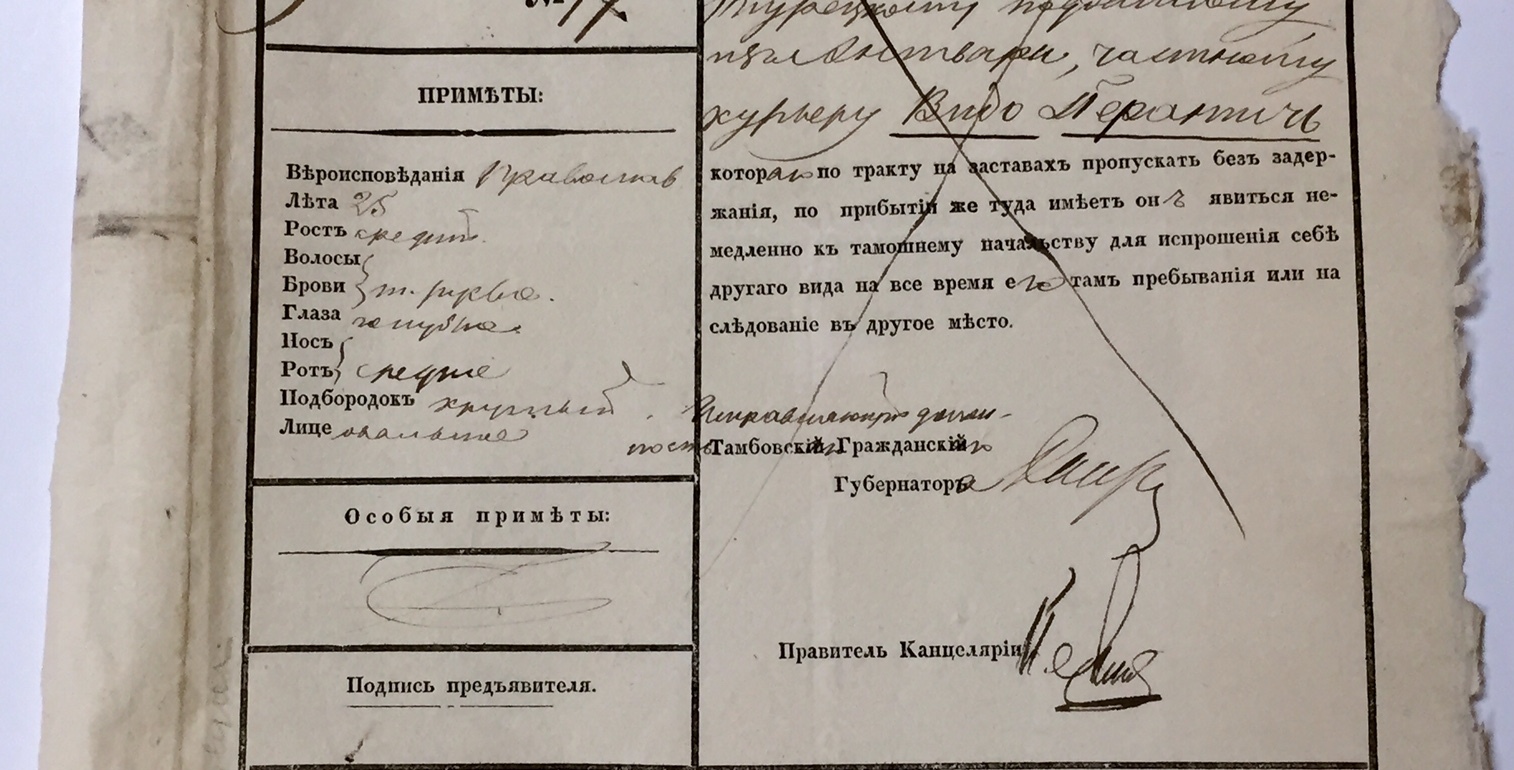 №
ПРИМѢТЫ:
Вѣроисповѣданія Православ
Лѣта 25
Ростъ средній
Волосы
Брови т. русые.
Глаза голубые.
Носъ
Ротъ средніе
Подбородокъ круглый.
Лице овальное
Особыя примѣты:
Подпись предъявителя.
Турецкому подданному
изъ Антвари, частному
курьеру Видо Перантичь
котораго по тракту на заставахъ пропускать безъ задер-
жанія, по прибытіи же туда имѣетъ онъ явиться не-
медленно къ тамошнему начальству для испрошенія себѣ
другаго вида на все время его тамъ пребыванія или на
слѣдованіе въ другое мѣсто.
Исправляющій долж-
ность Тамбовскій Гражданскій
Губернатора
Правитель Канцеляріи